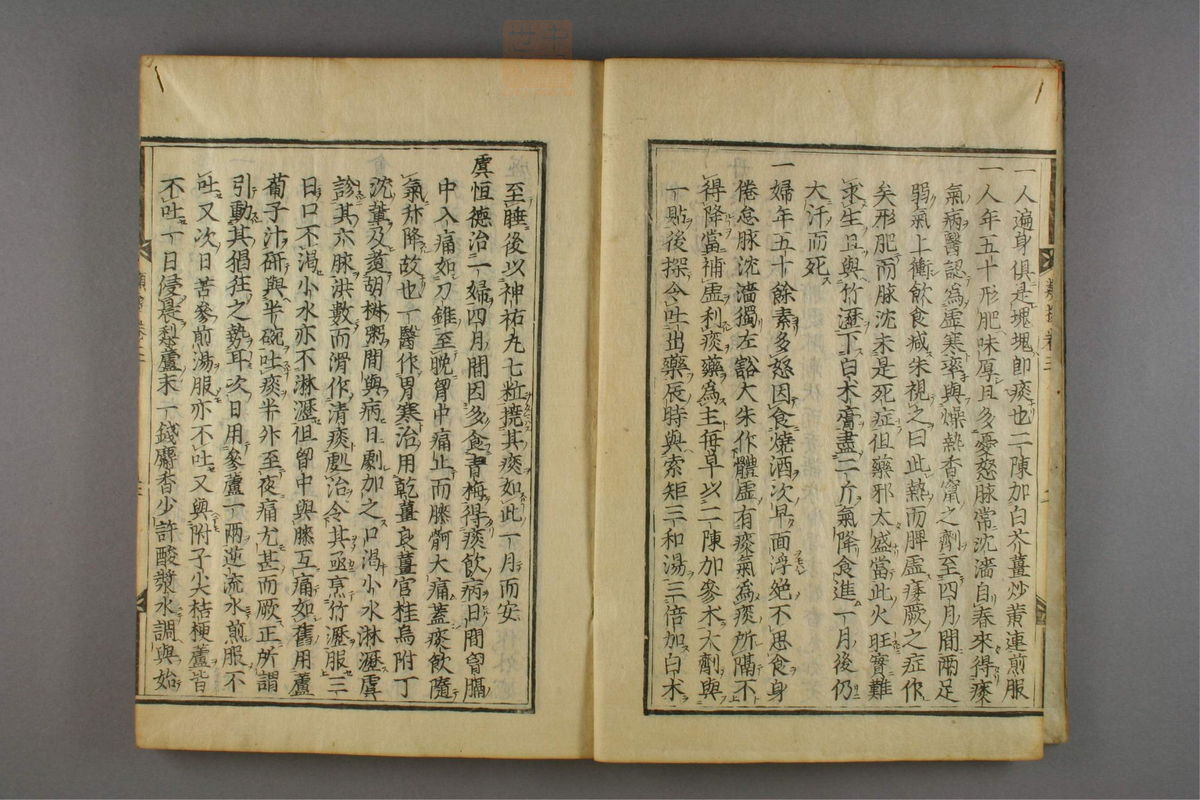 一人遍身俱是塊塊即痰也二陳加白芥薑炒黄連煎服
一人年五十形肥味厚且多憂怒脉常沈濇自春來得痰
氣病醫認為虚寒率與燥熱香竄之劑至四月間兩足
弱氣上衝飲食减朱視之曰此熱而脾虚痿厥之症作
矣形肥而脉沈未是死症但藥邪太盛當此火旺實難
求生且與竹瀝下白朮膏盡二斤氣降食進一月後仍
大汗而死
一婦年五十餘素多怒因食燒酒次早面浮絶不思食身
倦怠脉沈濇獨左豁大朱作體虚有痰氣為痰所隔不
得降當補虚利痰藥為主每早以二陳加參朮大劑與
一貼後探令吐出藥辰時與索矩三和湯三倍加白朮
至睡後以神祐丸七粒撓其痰如此一月而安
虞恒德治一婦四月間因多食青梅得痰飲病日間胷膈
中入痛如刀錐至晩胷中痛止而膝䯒大痛蓋痰飲隨
氣升降故也一醫作胃寒治用乾薑良薑官桂烏附丁
沈輩及煮胡椒粥間與病日劇加之口渴小水淋瀝虞
診其六脉洪數而滑作清痰劇治令其亟烹竹瀝服三
日口不渴小水亦不淋瀝但胷中與膝互痛如舊用蘆
萄子汁研與半碗吐痰半升至夜痛尤甚而厥正所謂
引動其猖狂之勢耳次日用參蘆一兩逆流水煎服不
吐又次日苦參煎湯服亦不吐又與附子尖桔梗蘆皆
不吐一日侵晨藜蘆末一錢麝香少許酸漿水調與始